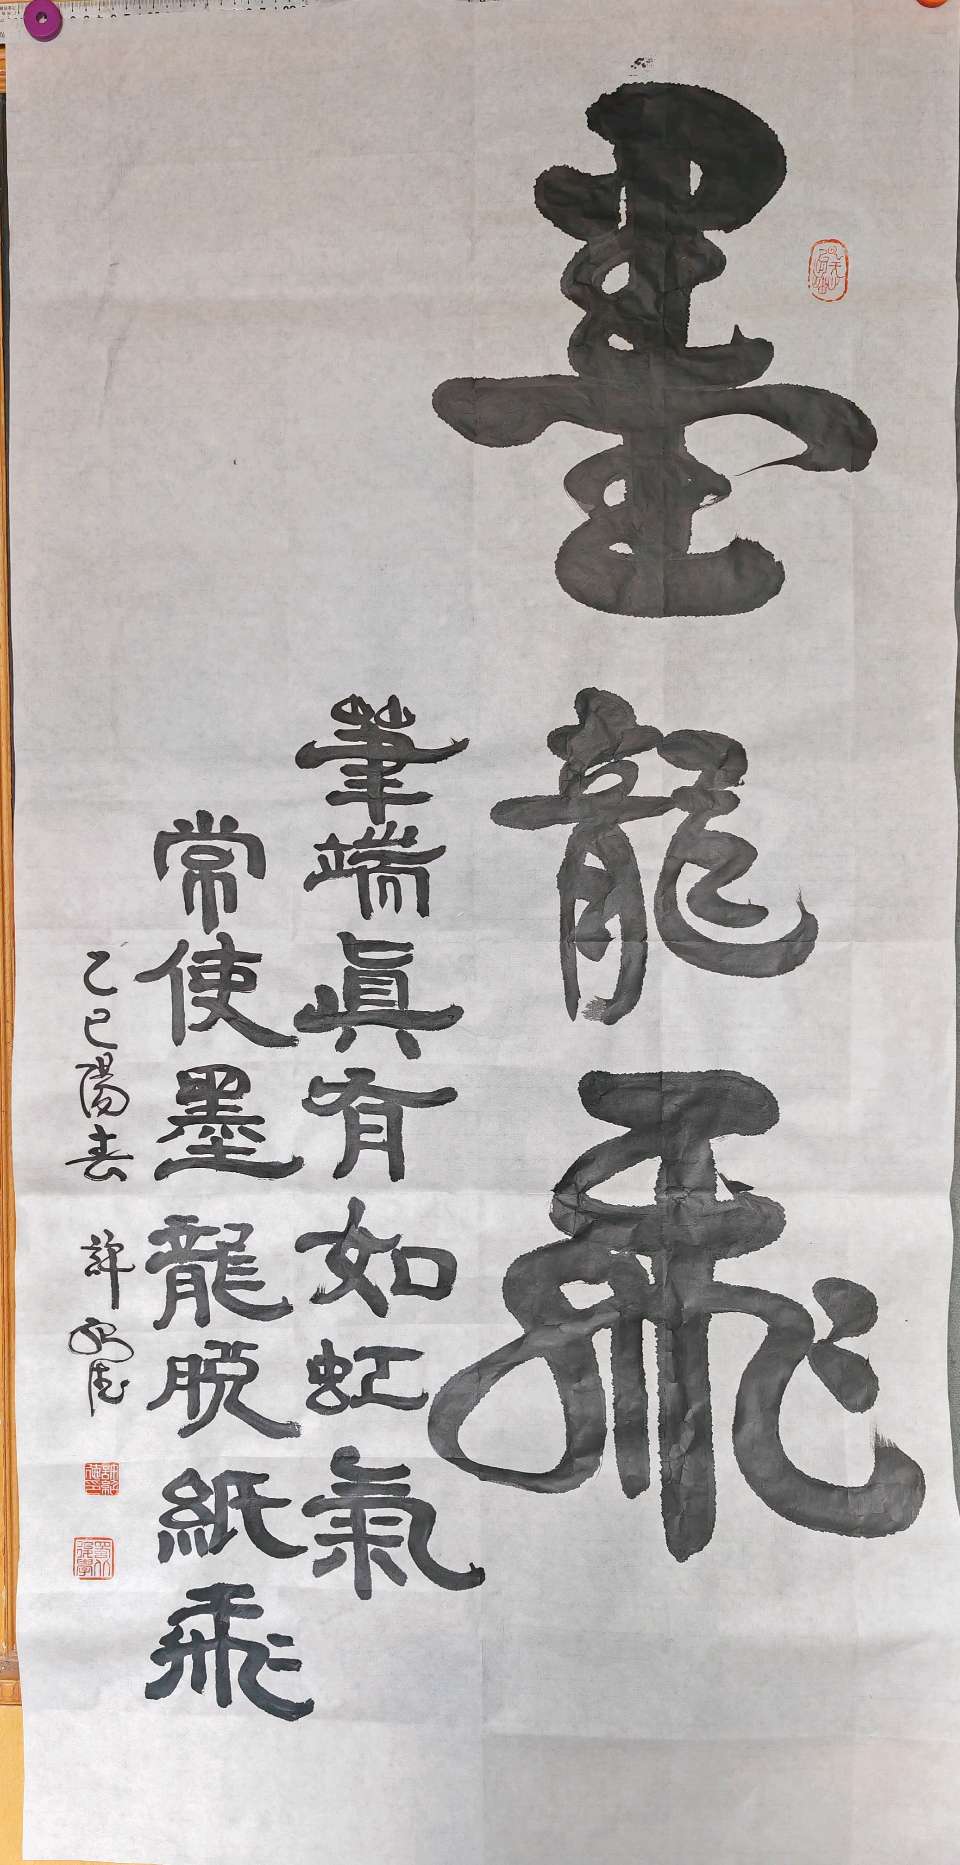 墨龍飛
筆端真有如虹氣
常使墨龍脫紙飛
乙巳陽春 許